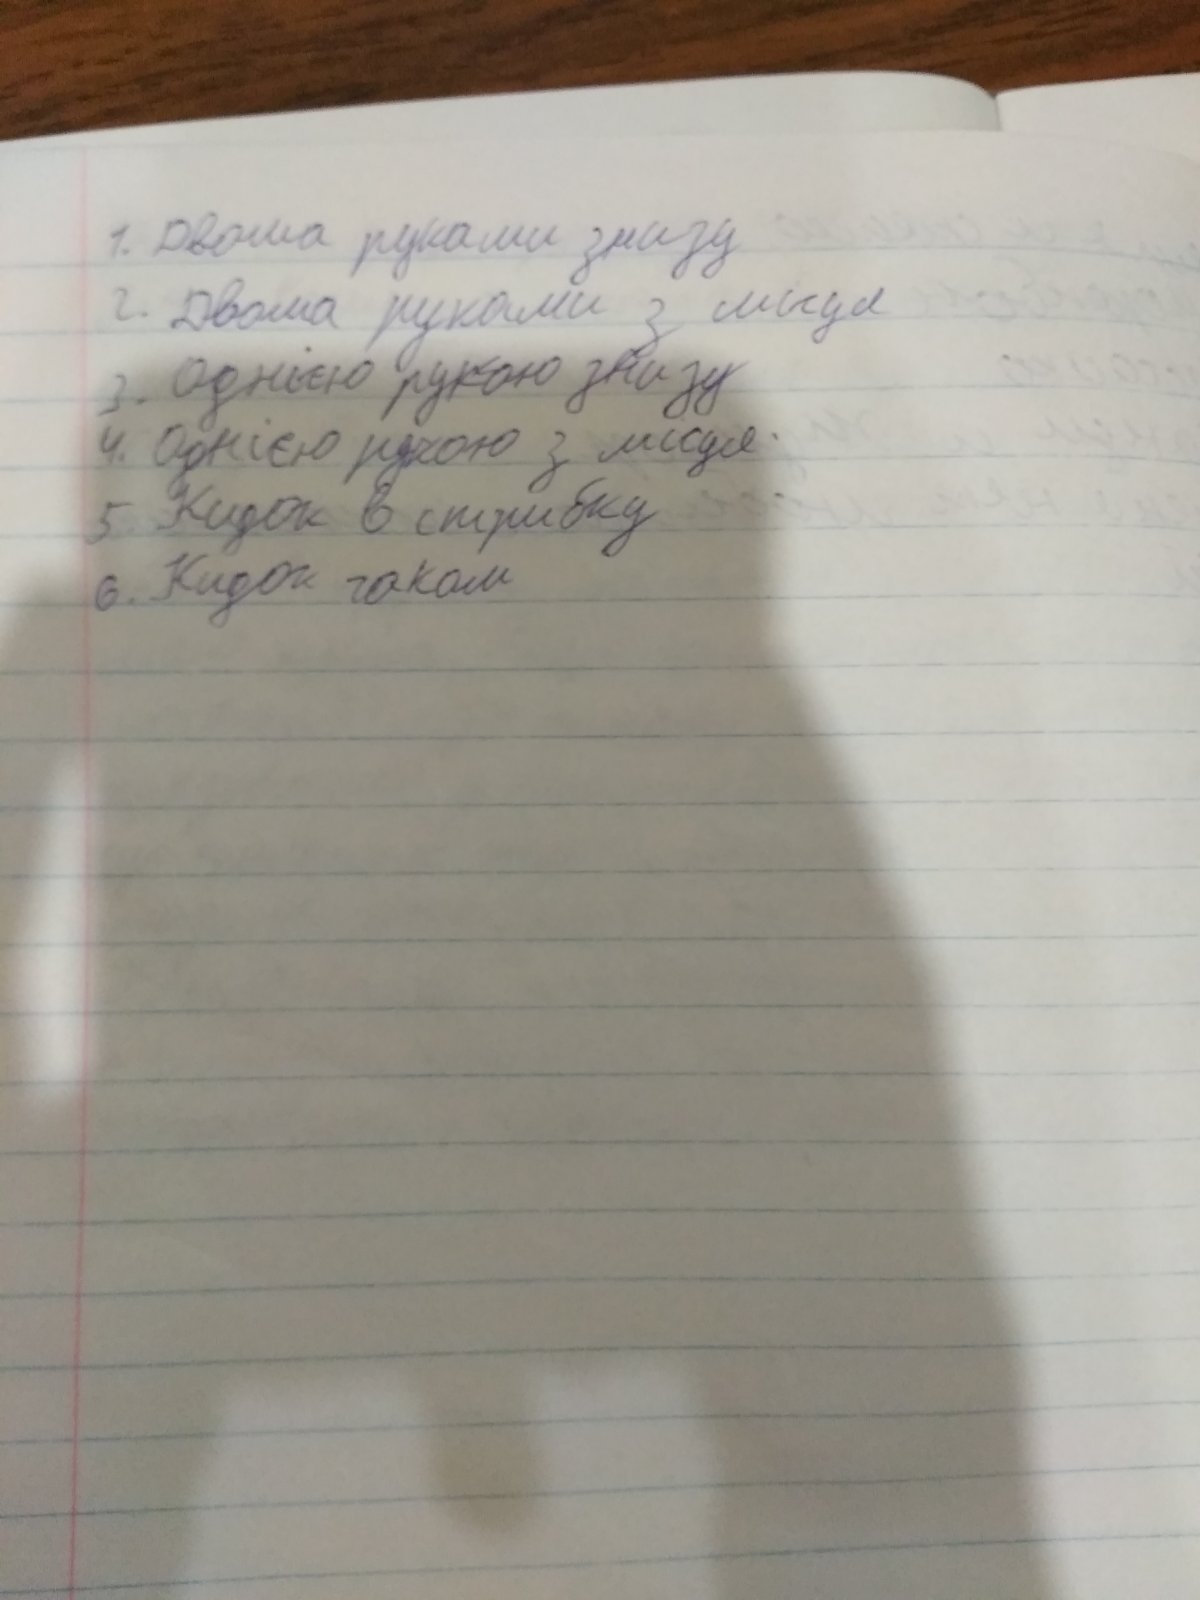 1. Двома руками знизу
2. Двома руками з місця
3. Однією рукою знизу
4. Однією рукою з місця.
5. Кидок в стрибку
6. Кидок гаком